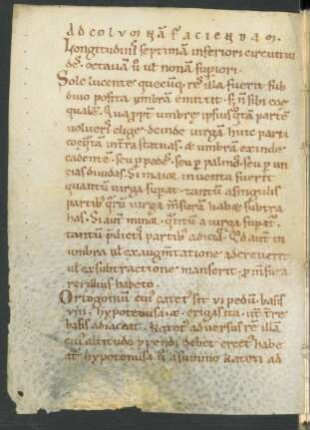 AD COLVMNĀ FACIENDAM.
Longitudinis septimam inferiori circuitui
de. octauam ū ul nonam supiori.
Sole lucente quecūq; res illa fuerit sub
diuo posita umbrā emittit. s; n sibi coe
qualē. Quapropt umbre ipsius quotā partē
uolueris elige. deinde uirgā huic parti
coeq̄tā intra statuas. & umbrā exinde
cadentē. seu p pedes. seu p palmos. seu p un
cias diuidas. Si maior inuenta fuerit
quantū uirga supat. tantū a singulis
partib; mensurā habere subtra
has. Si autē minor. quantū a uirga supat
tantū pdictis partib; adicias. Qd aut in
umbra ul ex augmtatione adcreuerit
ul ex subtractione manserit. p msura
rei illius habeto.
Ortogoniū cui catet' sit ui pedū. basis
uiii. hypotenusa x. erigas ita. ut t tre
basis adiaceat. Katet' aduersus rē illā
cui altitudo debet erect' habe
at. hypotenusa ū a summo kateti ad